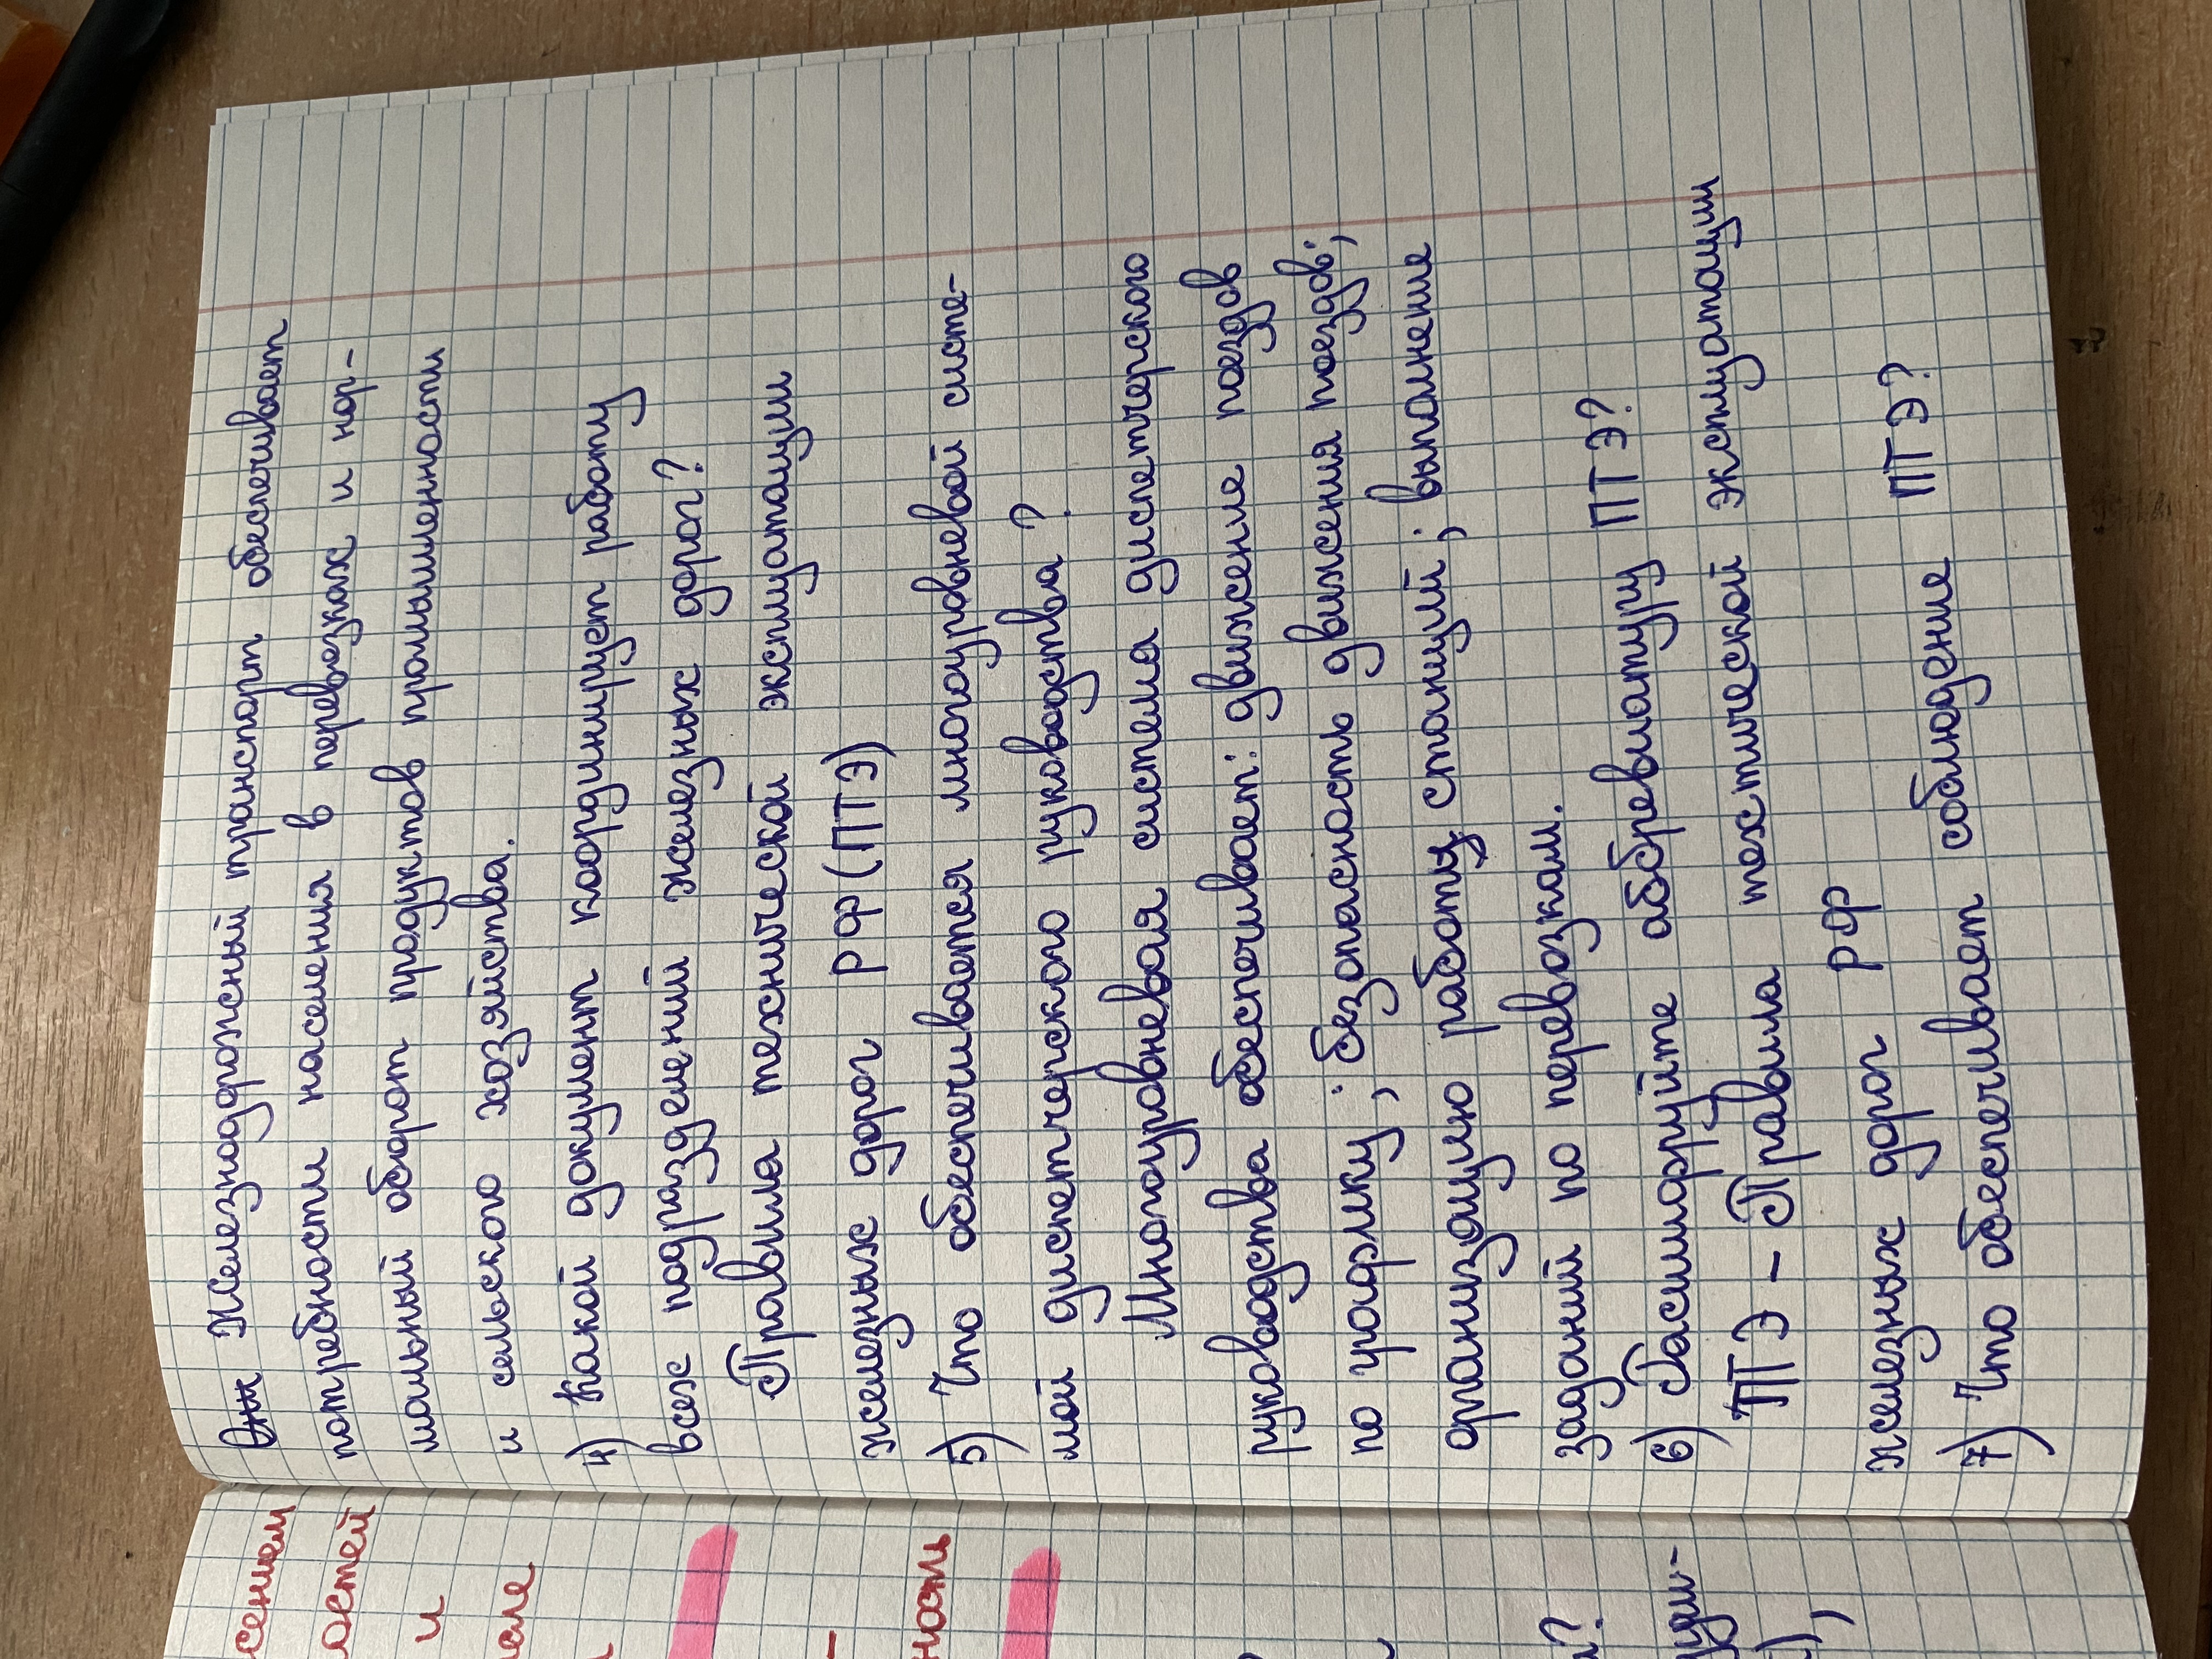 Железнодорожный транспорт обеспечивает
потребности населения в перевозках и нор-
мальный оборот продуктов промышленности
и сельского хозяйства.
4) Какой документ координирует работу
всех подразделений железных дорог?
Правила технической эксплуатации
железных дорог РФ (ПТЭ)
5) Что обеспечивается многоуровневой систе-
мой диспетчерского руководства?
Многоуровневая система диспетчерского
руководства обеспечивает: движение поездов
по графику; безопасность движения поездов;
организацию работы станций; выполнение
заданий по перевозкам.
6) Расшифруйте аббревиатуру ПТЭ?
ПТЭ - Правила технической эксплуатации
железных дорог РФ
7) Что обеспечивает соблюдение ПТЭ?
сением
остей
и